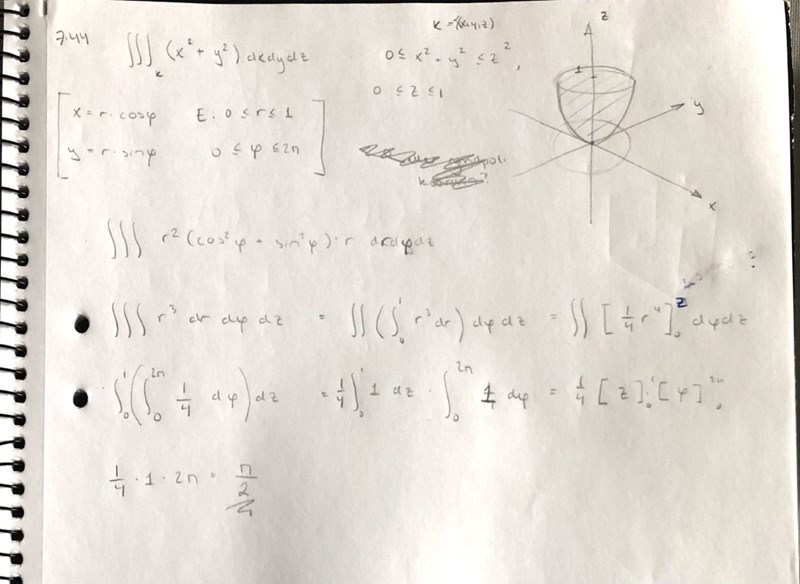 7.44
∭_K (x² + y²) dxdydz
K = {(x,y,z)
0 ≤ x² + y² ≤ z²,
0 ≤ z ≤ 1
x = r · cosφ   E: 0 ≤ r ≤ 1
y = r · sinφ   0 ≤ φ ≤ 2π
z
1
y
x
∭ r² (cos²φ + sin²φ) · r drdφdz
∭ r³ dr dφ dz = ∬ (∫₀¹ r³ dr) dφ dz = ∬ [¼ r⁴]₀ᶻ dφdz
∫₀¹ (∫₀²ᵖⁱ ¼ dφ) dz = ¼ ∫₀¹ 1 dz · ∫₀²ᵖⁱ 1 dφ = ¼ [z]₀¹ · [φ]₀²ᵖⁱ
¼ · 1 · 2π = π/2